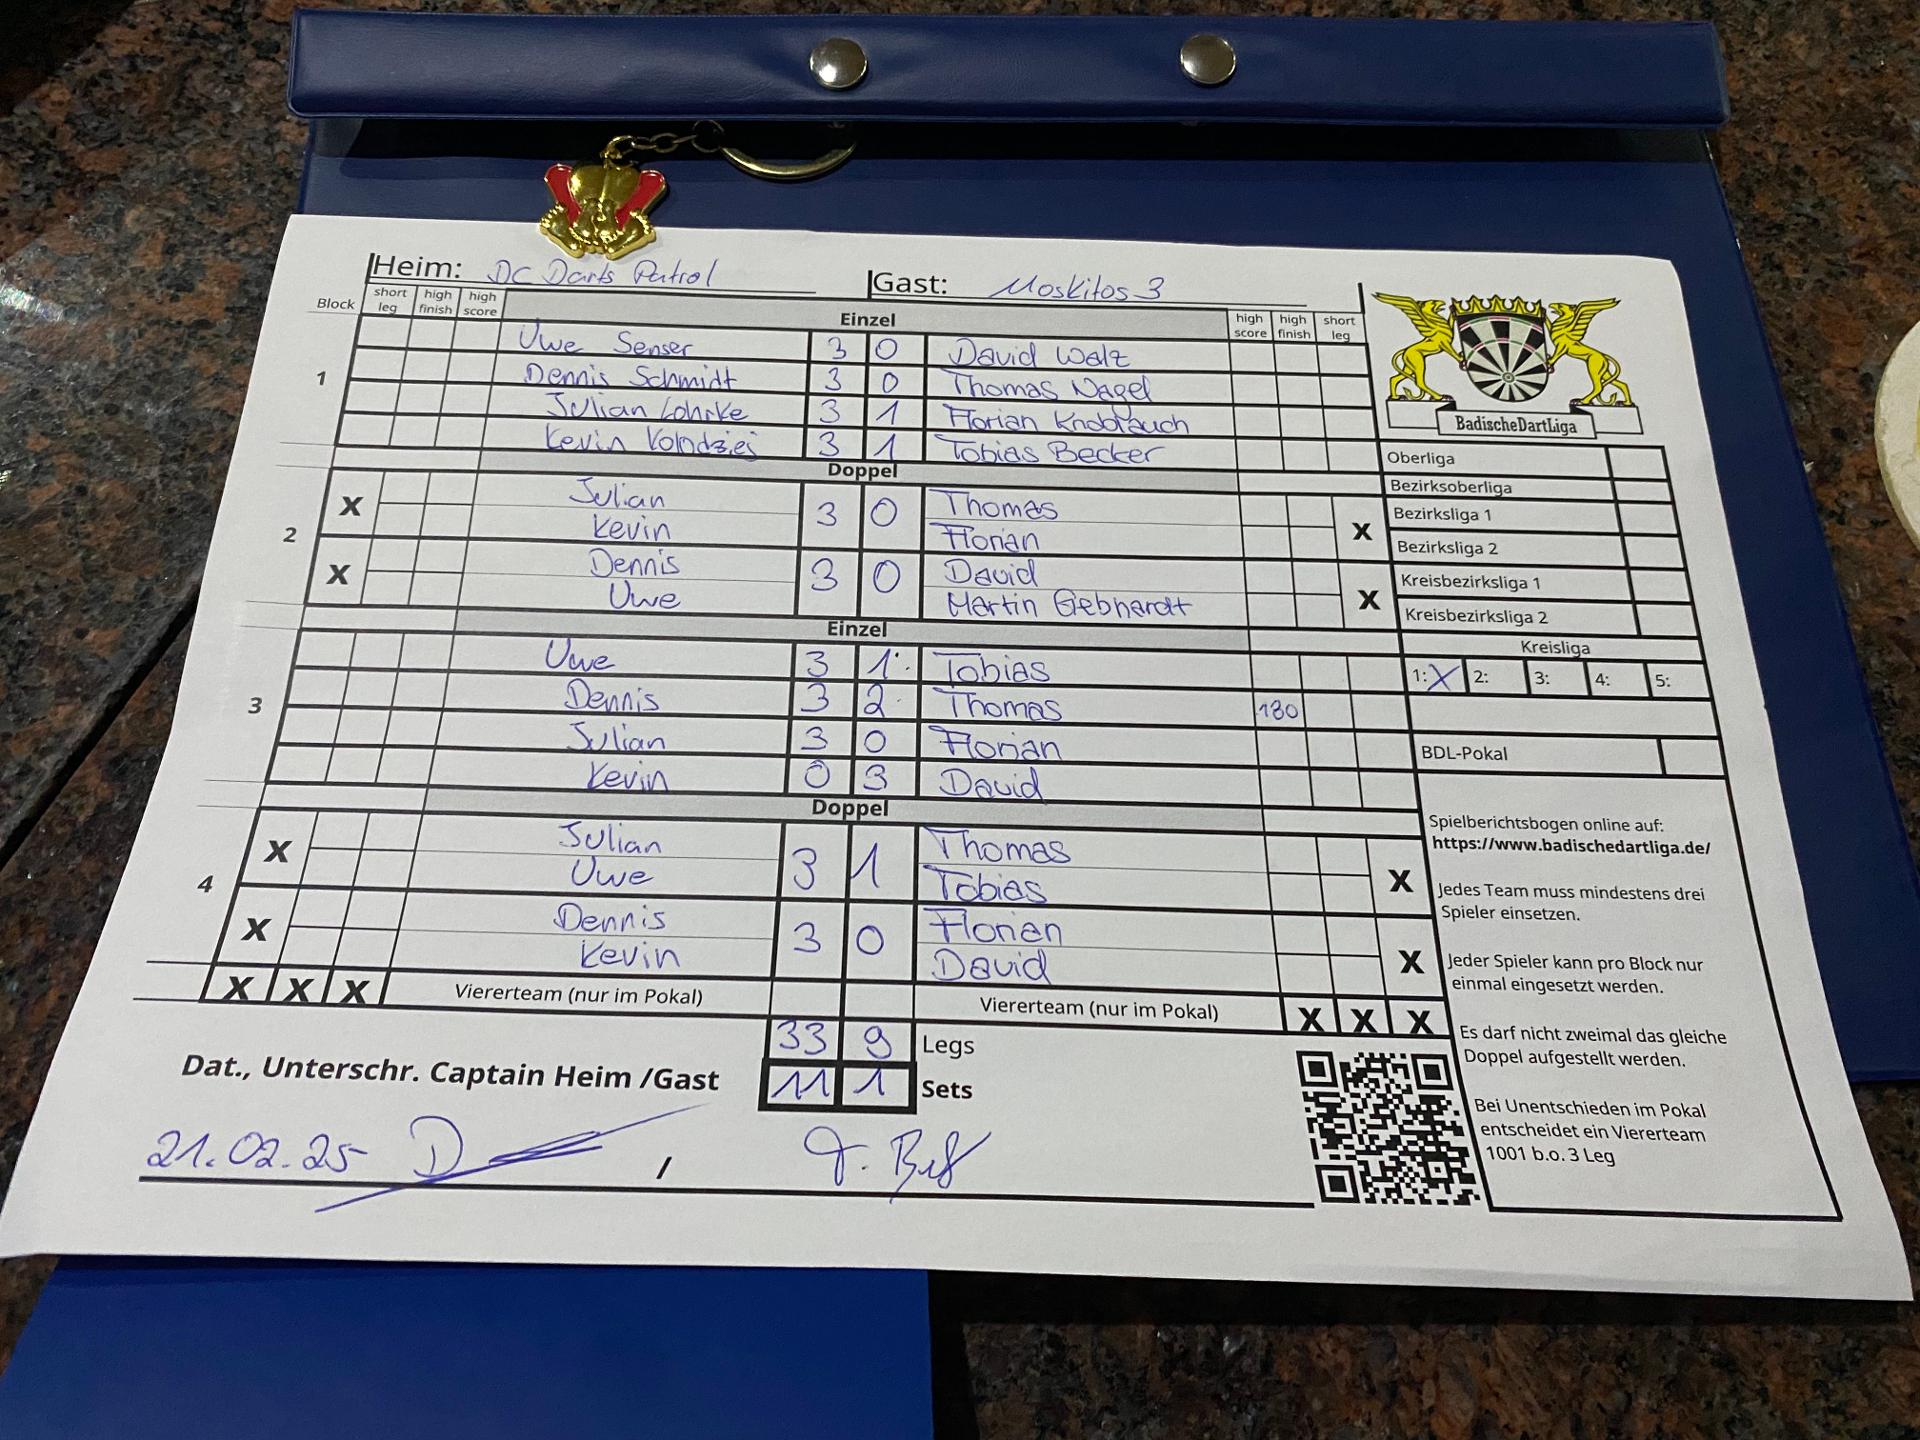 Heim: DC Darts Patrol Gast: Moskitos 3
Block short leg high finish high score Einzel high score high finish short leg
1
Uwe Senser 3 0 David Walz
Dennis Schmidt 3 0 Thomas Nagel
Julian Lohrke 3 1 Florian Knoblauch
Kevin Kolodziej 3 1 Tobias Becker
Doppel
2
X Julian 3 0 Thomas X
Kevin Florian
X Dennis 3 0 David X
Uwe Martin Gebhardt
Einzel
3
Uwe 3 1 Tobias
Dennis 3 2 Thomas 180
Julian 3 0 Florian
Kevin 0 3 David
Doppel
4
X Julian 3 1 Thomas X
Uwe Tobias
X Dennis 3 0 Florian X
Kevin David
X X X Viererteam (nur im Pokal) Viererteam (nur im Pokal) X X X
33 9 Legs
11 1 Sets
Dat., Unterschr. Captain Heim /Gast
21.02.25 /
BadischeDartLiga
Oberliga
Bezirksoberliga
Bezirksliga 1
Bezirksliga 2
Kreisbezirksliga 1
Kreisbezirksliga 2
Kreisliga
1: X 2: 3: 4: 5:
BDL-Pokal
Spielberichtsbogen online auf:
https://www.badischedartliga.de/
Jedes Team muss mindestens drei
Spieler einsetzen.
Jeder Spieler kann pro Block nur
einmal eingesetzt werden.
Es darf nicht zweimal das gleiche
Doppel aufgestellt werden.
Bei Unentschieden im Pokal
entscheidet ein Viererteam
1001 b.o. 3 Leg